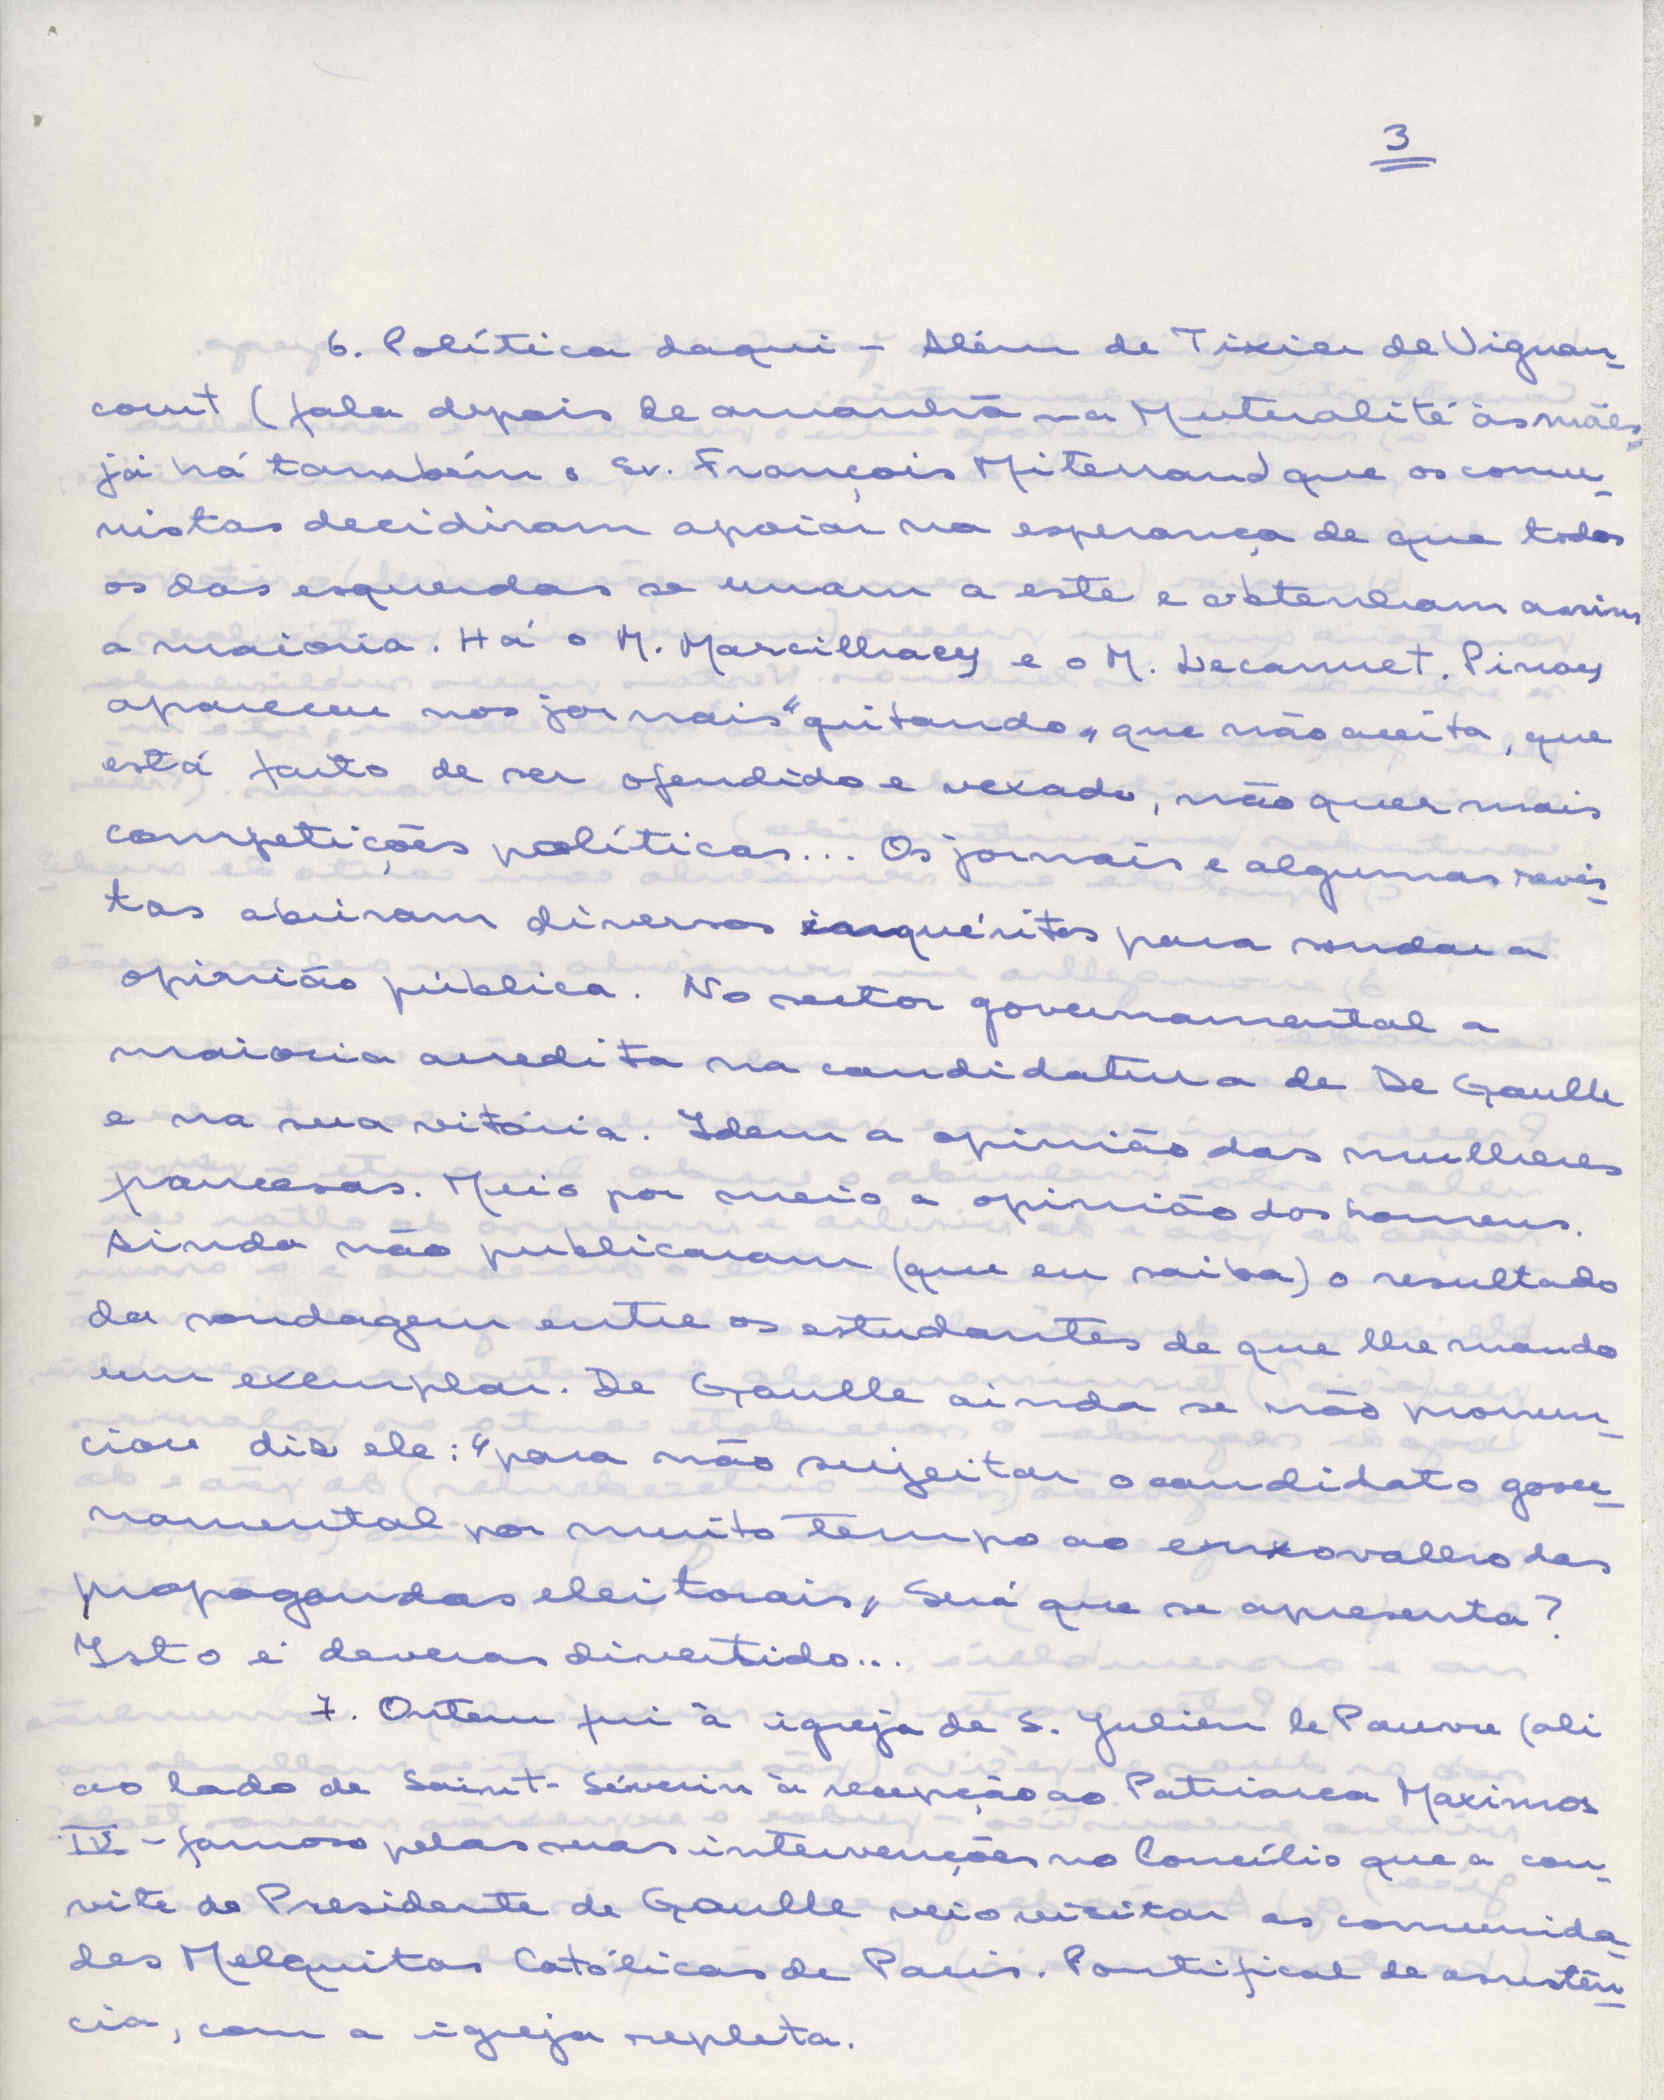 3
6. Política daqui - Além de Tixier de Vignan-
court (fala depois de amanhã na Mutualité às mães,
já há também o Sr. François Miterrand que os comu-
nistas decidiram apoiar na esperança de que todos
os das esquerdas se unam a este e obtenham assim
a maioria. Há o M. Marcilhacy e o M. Lecannet. Pinay
apareceu nos jornais "gritando" que não aceita, que
está farto de ser ofendido e vexado, não quer mais
competições políticas... Os jornais e algumas revis-
tas abriram diversos inquéritos para sondar a
opinião pública. No sector governamental a
maioria acredita na candidatura de De Gaulle
e na sua vitória. Idem a opinião das mulheres
francesas. Meio por meio a opinião dos homens.
Ainda não publicaram (que eu saiba) o resultado
da sondagem entre os estudantes de que lhe mando
um exemplar. De Gaulle ainda se não pronun-
ciou diz ele: "para não sujeitar o candidato gover-
namental por muito tempo ao enxovalho das
propagandas eleitorais" Será que se apresenta?
Isto é deveras divertido...
7. Ontem fui à igreja de S. Julien le Pauvre (ali
ao lado de Saint-Séverin à recepção ao Patriarca Maximos
IV - famoso pelas suas intervenções no Concílio que a con-
vite do Presidente de Gaulle veio visitar as comunida-
des Melquitas Católicas de Paris. Pontifical de assistên-
cia, com a igreja repleta.